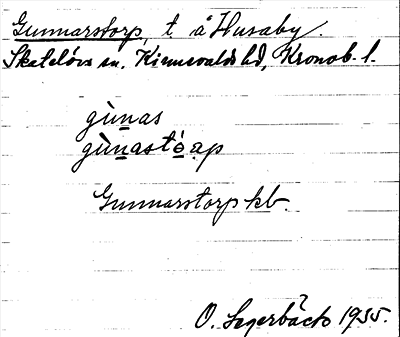 Gunnarstorp, t. å Husaby.
Skatelövs sn. Kinnevalds hd, Kronob. l.
gùṉas
gùṉastó̱ạp
Gunnarstorp kb.
O. Segerbäck 1935.